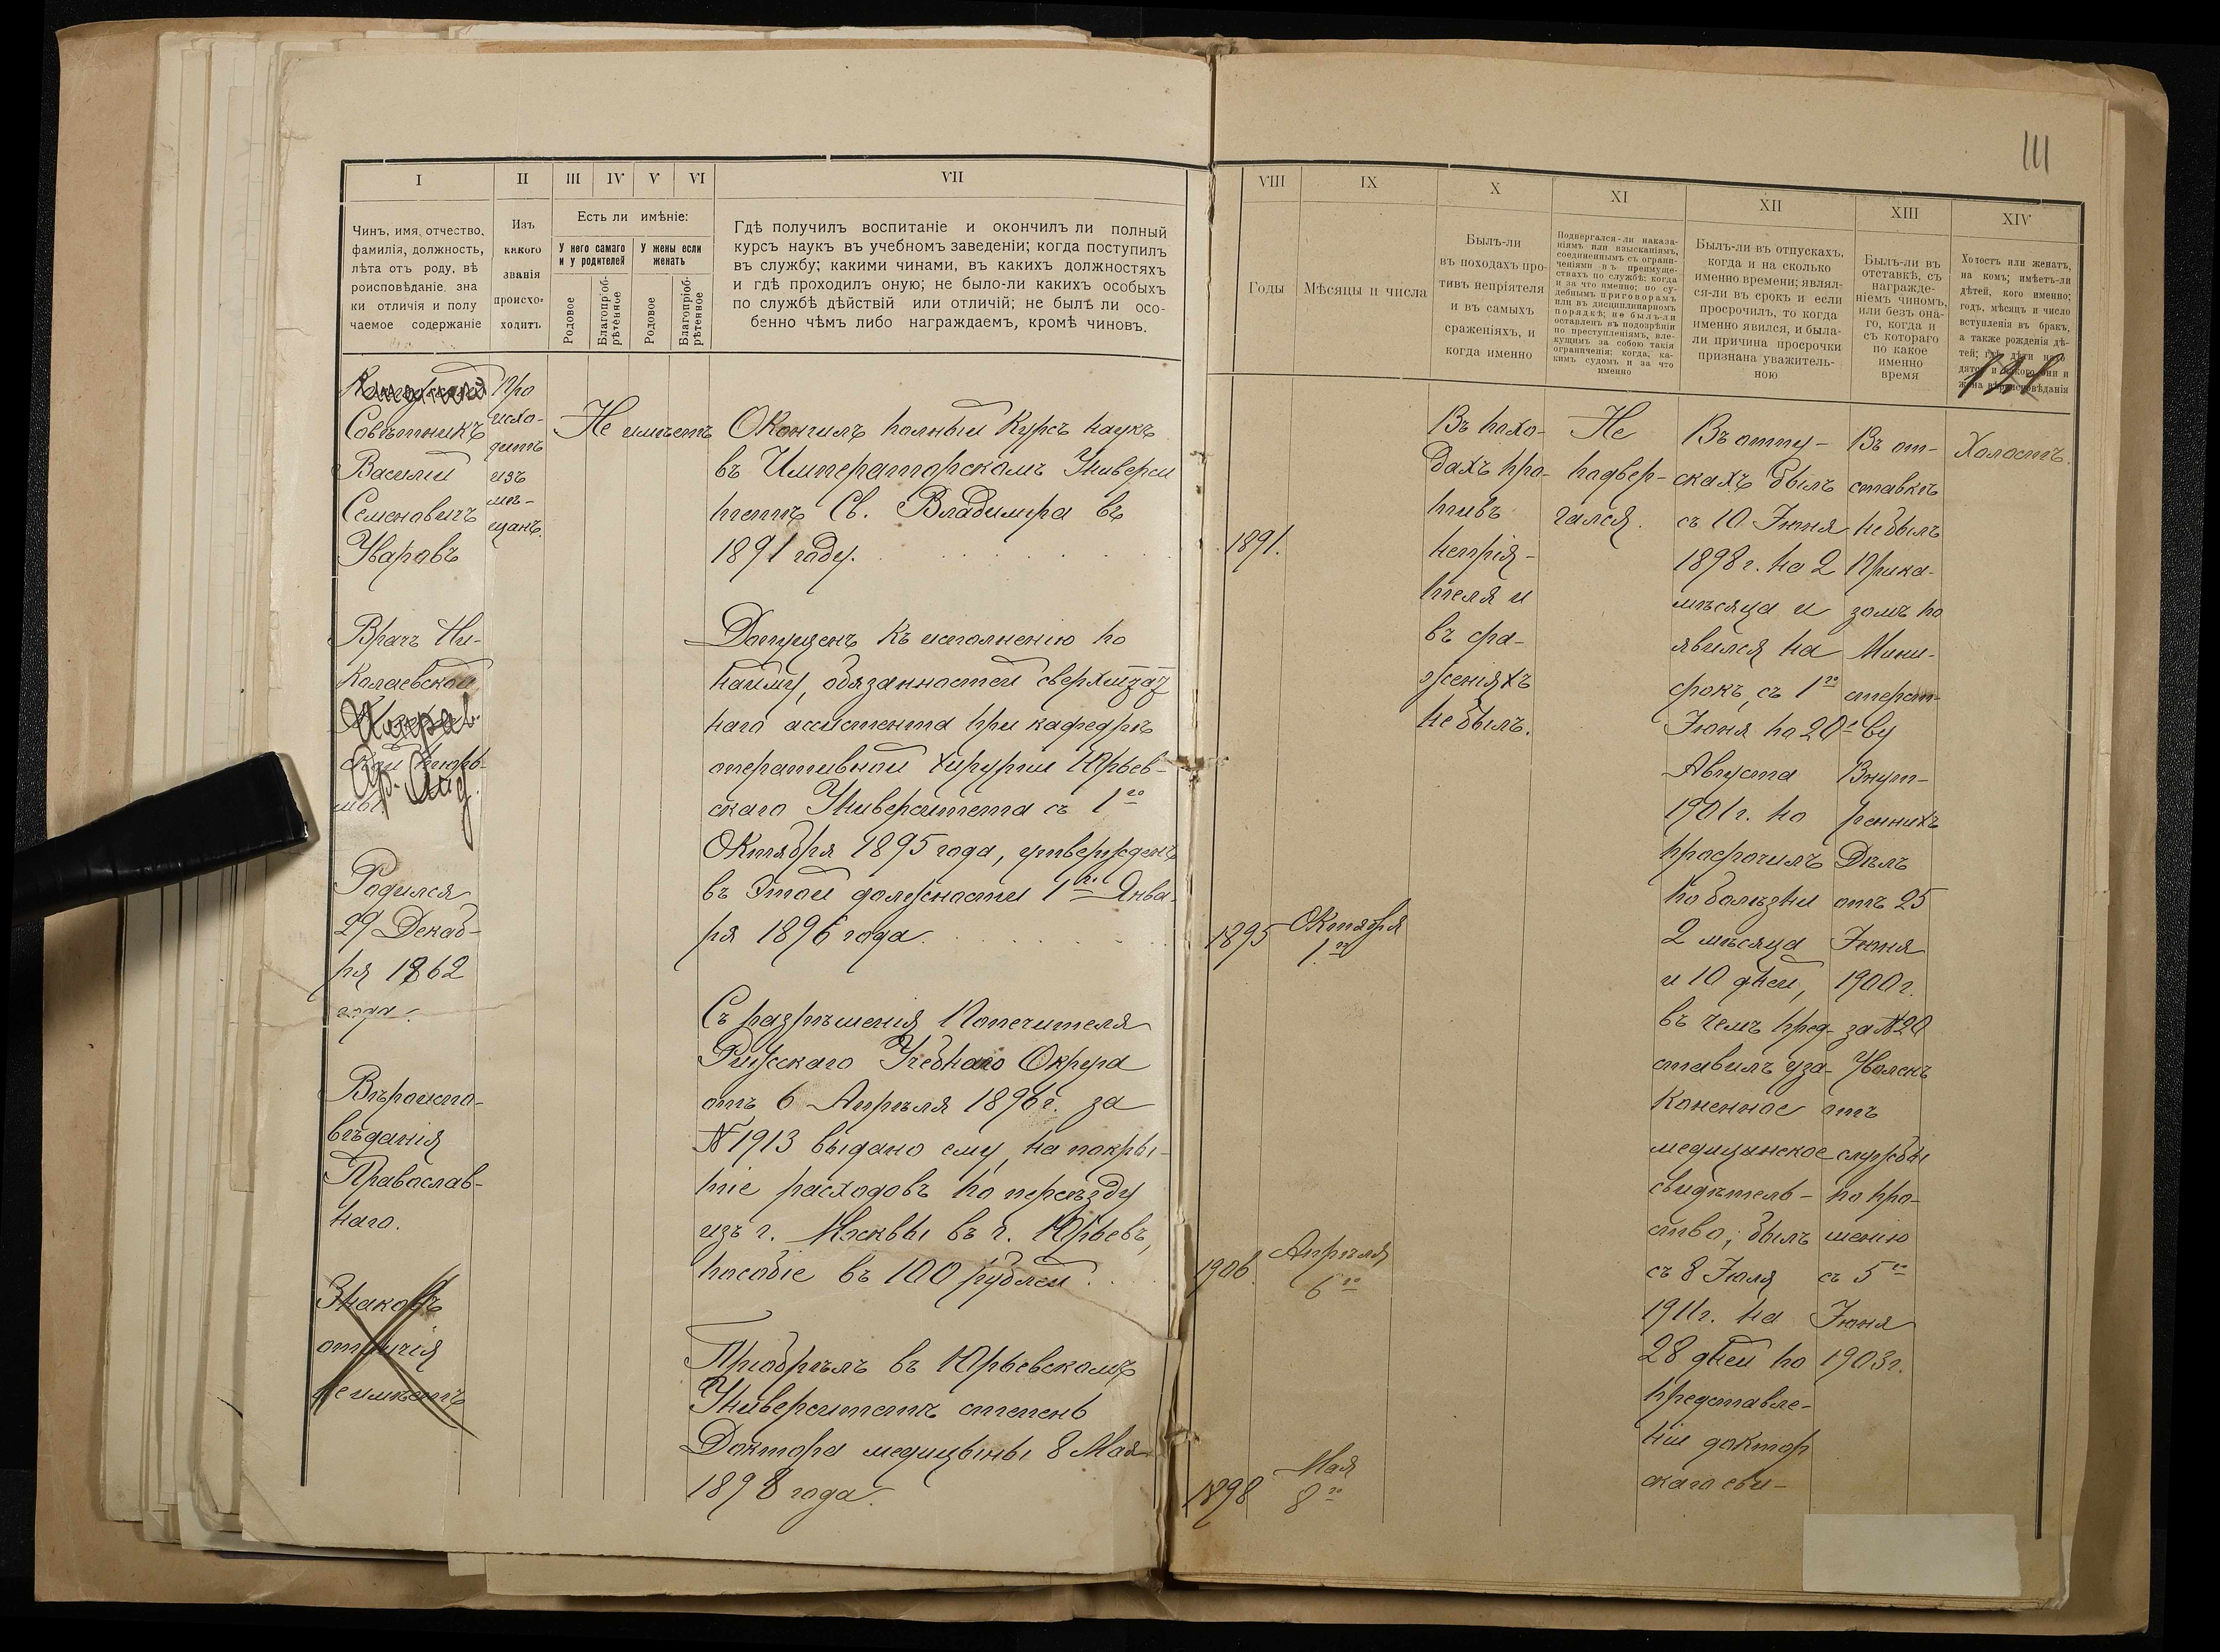 111
I II III IV V VI VII
VIII IX X XI XII XIII XIV
Чинъ, имя, отчество,
фамилія, должность,
лѣта отъ роду, вѣ
роисповѣданіе, зна
ки отличія и полу
чаемое содержаніе
Изъ
какого
званія
происхо-
ходитъ
Есть ли имѣніе:
У него самаго
и у родителей
У жены если
женатъ
Родовое
Благопріоб-
рѣтенное
Родовое
Благопріоб-
рѣтенное
Гдѣ получилъ воспитаніе и окончилъ ли полный
курсъ наукъ въ учебномъ заведеніи; когда поступилъ
въ службу; какими чинами, въ какихъ должностяхъ
и гдѣ проходилъ оную; не было-ли какихъ особыхъ
по службѣ дѣйствій или отличій; не былъ ли осо-
бенно чѣмъ либо награждаемъ, кромѣ чиновъ.
Годы
Мѣсяцы и числа
Былъ-ли
въ походахъ про-
тивъ непріятеля
и въ самыхъ
сраженіяхъ, и
когда именно
Подвергался-ли наказа-
ніямъ или взысканіямъ,
соединеннымъ съ ограни-
ченіями въ преимуще-
ствахъ по службѣ; когда
и за что именно; по су-
дебнымъ приговорамъ
или въ дисциплинарномъ
порядкѣ; не былъ-ли
оставленъ въ подозрѣніи
по преступленіямъ, вле-
кущимъ за собою такія
ограниченія; когда, ка-
кимъ судомъ и за что
именно
Былъ-ли въ отпускахъ,
когда и на сколько
именно времени; являл-
ся-ли въ срокъ и если
просрочилъ, то когда
именно явился, и была-
ли причина просрочки
признана уважитель-
ною
Былъ-ли въ
отставкѣ, съ
награжде-
ніемъ чиномъ,
или безъ она-
го, когда и
съ котораго
по какое
именно
время
Холостъ или женатъ,
на комъ; имѣетъ-ли
дѣтей, кого именно;
годъ, мѣсяцъ и число
вступленія въ бракъ,
а также рожденія дѣ-
тей; гдѣ дѣти нахо
дятся и какого они и
жена вѣроисповѣданія
Совѣтникъ
Василій
Семеновичъ
Уваровъ
Врачъ Ни-
колаевской
Родился
29 Декаб-
ря 1862
года.
Вѣроиспо-
вѣданія
Православ-
наго.
Знаковъ
отличія
не имѣетъ
Про
исхо-
дитъ
изъ
мѣ-
щанъ.
Не имѣетъ
Окончилъ полный курсъ наукъ
въ Императорскомъ Универси
тетѣ Св. Владимира въ
1891 году.
Допущенъ къ исполненію по
найму, обязанностей сверхштат
наго ассистента при кафедрѣ
оперативной хирургіи Юрьев-
скаго Университета съ 1го
Октября 1895 года, утвержденъ
въ этой должности 1го Янва-
ря 1896 года.
Съ разрѣшенія Попечителя
Рижскаго Учебнаго Округа
отъ 6 Апрѣля 1896г. за
№ 1913 выдано ему, на покры-
тіе расходовъ по переѣзду
изъ г. Москвы въ г. Юрьевъ,
пособіе въ 100 рублей.
Пріобрѣлъ въ Юрьевскомъ
Университетѣ степень
Доктора медицины 8 Мая
1898 года.
1891.
1895 Октября
1го
1906. Апрѣля
6го
1898 Мая
8го
Въ похо-
дахъ про-
тивъ
непрія-
теля и
въ сра-
женіяхъ
не былъ.
Не
подвер-
гался.
Въ отпу-
скахъ былъ
съ 10 Іюня
1898 г. на 2
мѣсяца и
явился на
срокъ, съ 1го
Іюня по 20е
Августа
1901 г. но
просрочилъ
по болѣзни
2 мѣсяца
и 10 дней,
въ чемъ пред-
ставилъ уза-
коненное
медицинское
свидѣтель-
ство; былъ
съ 8 Іюля
1911 г. на
28 дней по
представле-
ніи доктор
скаго сви-
Въ от-
ставкѣ
не былъ
Прика-
зомъ по
Мини-
стерст-
ву
Внут-
реннихъ
Дѣлъ
отъ 25
Іюня
1900 г.
за № 20
Уволенъ
отъ
службы
по про-
шенію
съ 5го
Іюня
1903 г.
Холостъ.